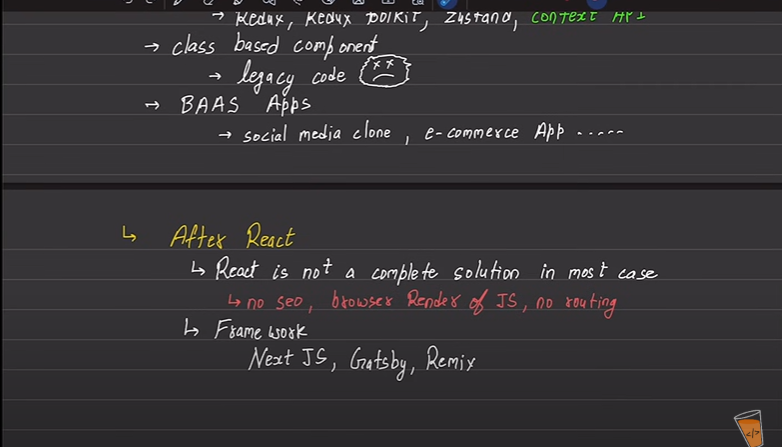 → Redux, Redux toolkit, zustand, context API
→ class based component
→ legacy code
→ BAAS Apps
→ social media clone, e-commerce App .....
↳ After React
↳ React is not a complete solution in most case
↳ no seo, browser Render of JS, no routing
↳ Framework
Next JS, Gatsby, Remix
</>